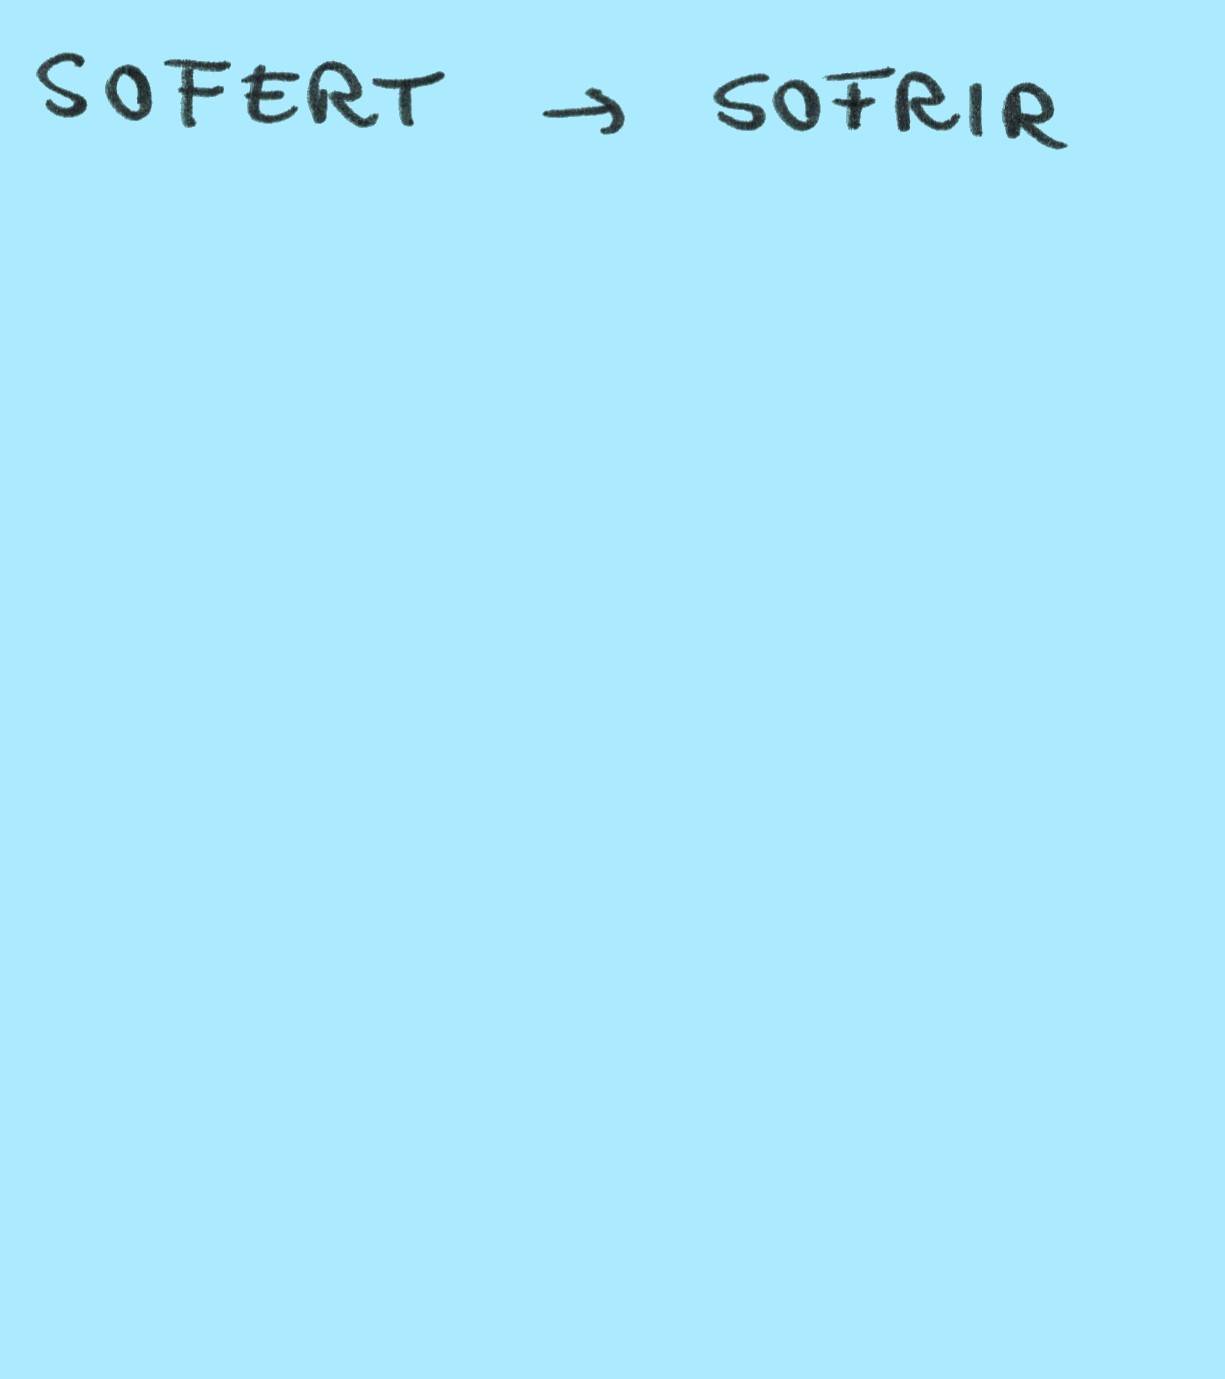 SOFERT → SOFRIR